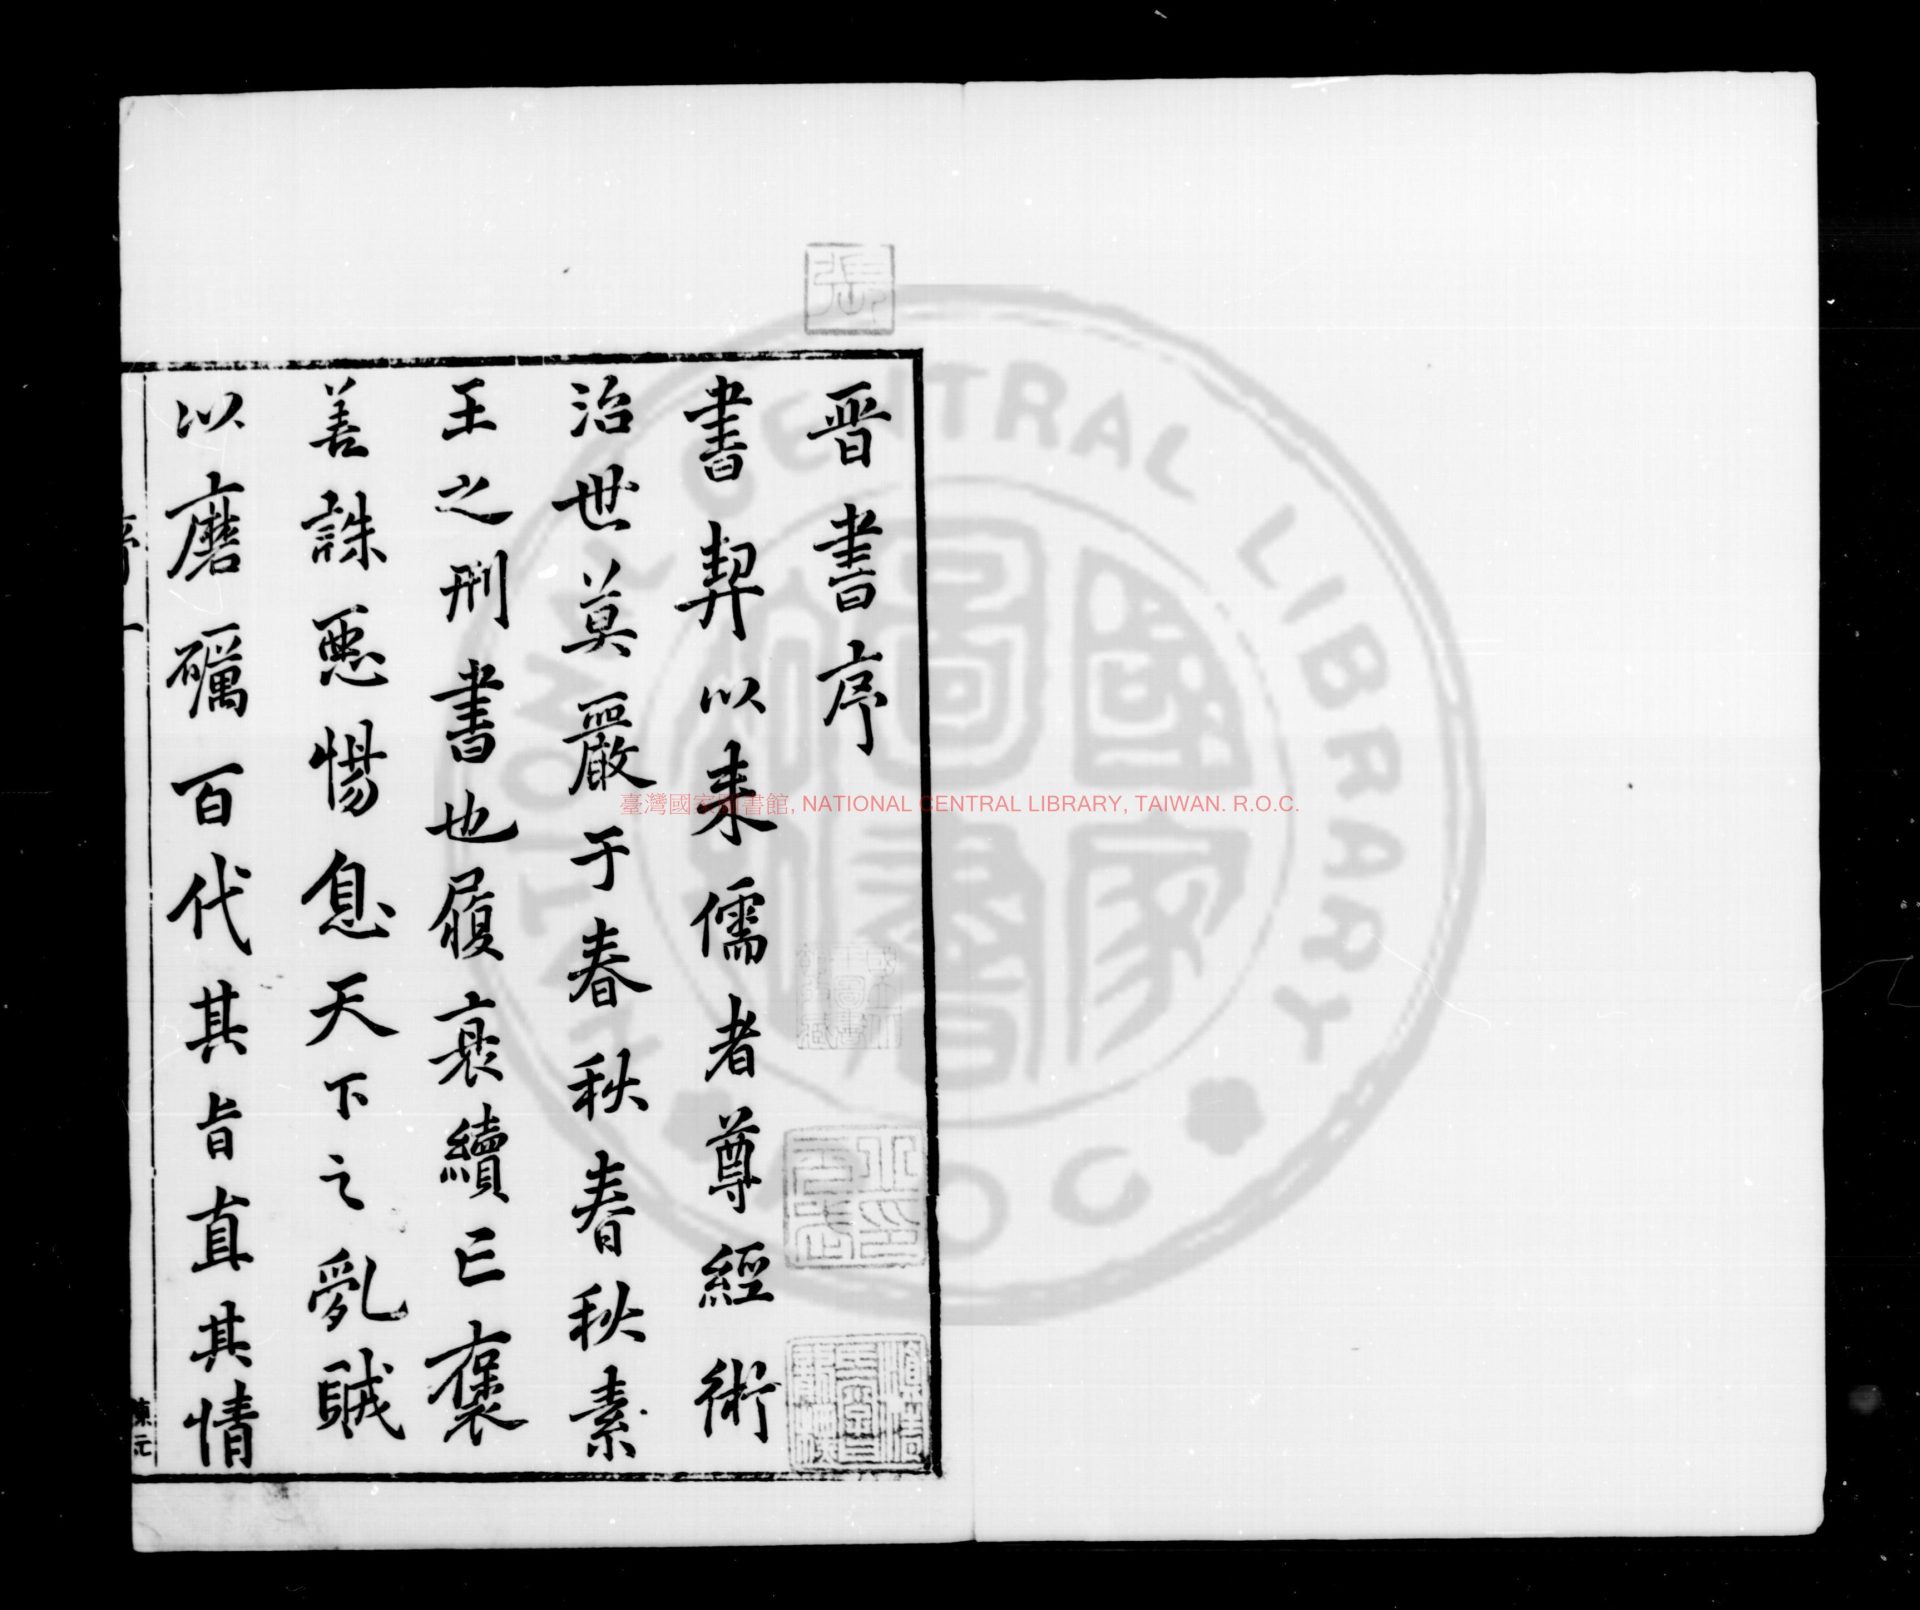 晋書序
書契以来儒者尊經術
治世莫嚴于春秋春秋素
王之刑書也履衰續已褒
善誅惡惕息天下之亂賊
以磨礪百代其旨直其情
序一
陳元
張
臺灣國家圖書館, NATIONAL CENTRAL LIBRARY, TAIWAN. R.O.C.
NATIONAL CENTRAL LIBRARY
R.O.C.
國家圖書